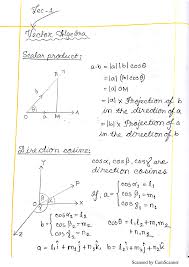 Lec-1
Vector Algebra
Scalar product:
a·b = |a| |b| cosθ
= |a| (|b| cosθ)
= |a| OM
= |a| x Projection of b
in the direction of a
= |b| x Projection of a
in the direction of b
Direction cosine:
cosα, cosβ, cosγ are
direction cosines
a =
cosα = l₁
cosβ = m₁
cosγ = n₁
b =
cosα₂ = l₂
cosβ₂ = m₂
cosγ₂ = n₂
cosθ = l₁l₂ + m₁m₂
+ n₁n₂
a = l₁i + m₁j + n₁k, b = l₂i + m₂j + n₂k
Scanned by CamScanner